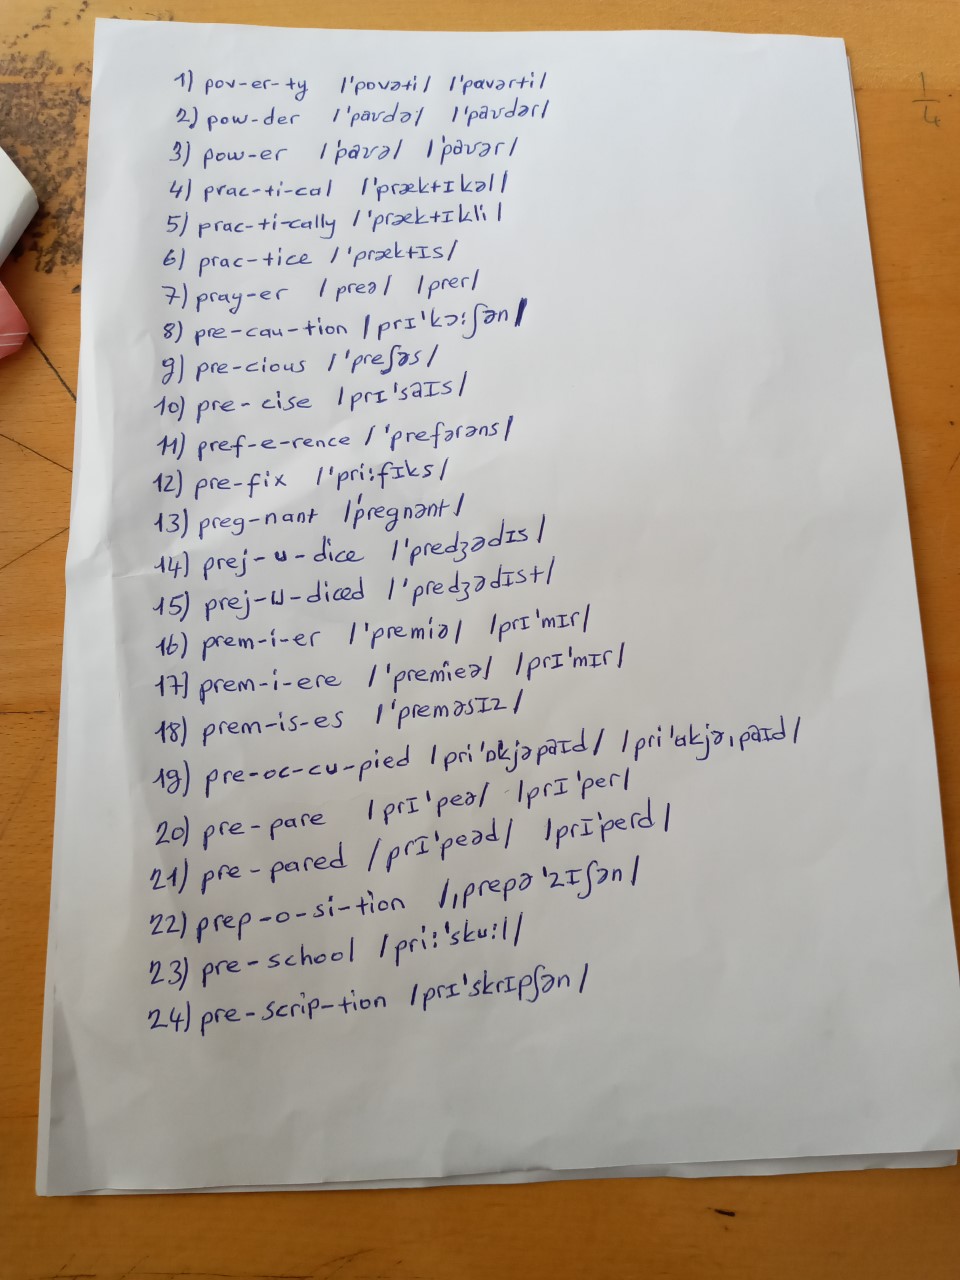 1) pov-er-ty /ˈpovəti/ /ˈpavərti/
2) pow-der /ˈpaʊdə/ /ˈpaʊdər/
3) pow-er /ˈpaʊə/ /ˈpaʊər/
4) prac-ti-cal /ˈpræktɪkəl/
5) prac-ti-cally /ˈpræktɪkli/
6) prac-tice /ˈpræktɪs/
7) pray-er /preə/ /prer/
8) pre-cau-tion /prɪˈkɔ:ʃən/
9) pre-cious /ˈpreʃəs/
10) pre-cise /prɪˈsaɪs/
11) pref-e-rence /ˈprefərəns/
12) pre-fix /ˈpri:fɪks/
13) preg-nant /ˈpregnənt/
14) prej-u-dice /ˈpredʒədɪs/
15) prej-u-diced /ˈpredʒədɪst/
16) prem-i-er /ˈpremiə/ /prɪˈmɪr/
17) prem-i-ere /ˈpremieə/ /prɪˈmɪr/
18) prem-is-es /ˈpreməsɪz/
19) pre-oc-cu-pied /priˈɒkjəpaɪd/ /priˈɑkjəˌpaɪd/
20) pre-pare /prɪˈpeə/ /prɪˈper/
21) pre-pared /prɪˈpeəd/ /prɪˈperd/
22) prep-o-si-tion /ˌprepəˈzɪʃən/
23) pre-school /pri:ˈsku:l/
24) pre-scrip-tion /prɪˈskrɪpʃən/
1/4